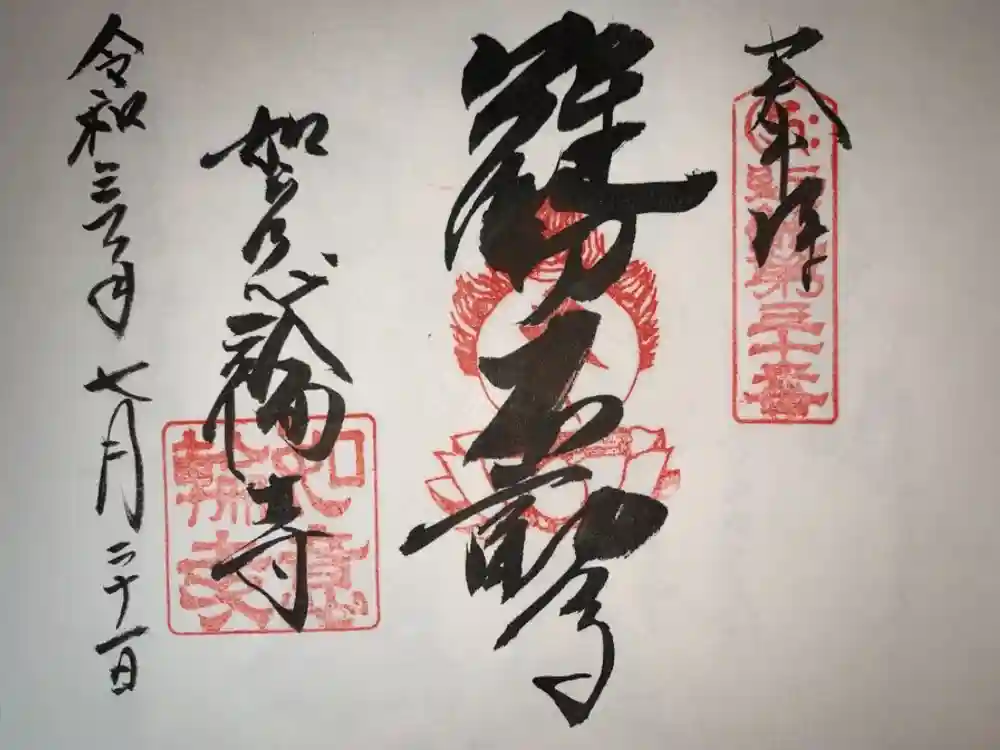 奉拝
第三十番
難切不動尊
如意輪寺
令和三年七月二十一日